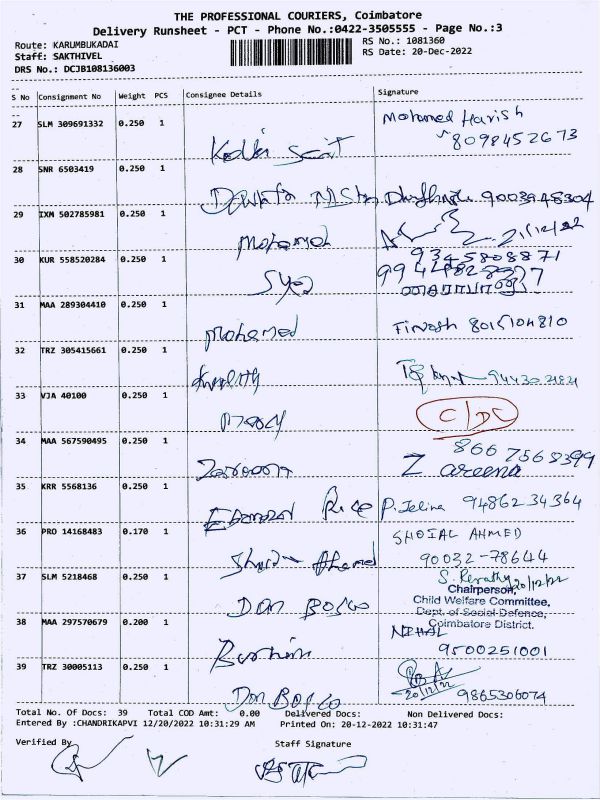 THE PROFESSIONAL COURIERS, Coimbatore
Delivery Runsheet - PCT - Phone No.:0422-3505555 - Page No.:3
Route: KARUMBUKADAI
RS No.: 1081360
Staff: SAKTHIVEL
RS Date: 20-Dec-2022
DRS No.: DCJB108136003
S No Consignment No Weight PCS Consignee Details Signature
27 SLM 309691332 0.250 1 Mohamed Harish
8098452673
28 SNR 6503419 0.250 1
9003948304
29 IXM 502785981 0.250 1
Mohamed 21/12/22
30 KUR 558520284 0.250 1 9345808871
Syed
31 MAA 289304410 0.250 1
Mohamed Firnash 8015104810
32 TRZ 305415661 0.250 1
33 VJA 40100 0.250 1
C/DC
34 MAA 567590495 0.250 1 8667568399
Zareena
35 KRR 5568136 0.250 1
Rice P. Jelina 9486234364
36 PRO 14168483 0.170 1 SHOIAL AHMED
Ahamed 90032-78644
37 SLM 5218468 0.250 1 20/12/22
Chairperson,
Child Welfare Committee,
DON BOSCO Dept. of Social Defence,
38 MAA 297570679 0.200 1 Coimbatore District.
NIHAL
9500251001
39 TRZ 30005113 0.250 1
Don Bosco 20/12/22 9865306074
Total No. Of Docs: 39 Total COD Amt: 0.00 Delivered Docs: Non Delivered Docs:
Entered By :CHANDRIKAPVI 12/20/2022 10:31:29 AM Printed On: 20-12-2022 10:31:47
Verified By Staff Signature